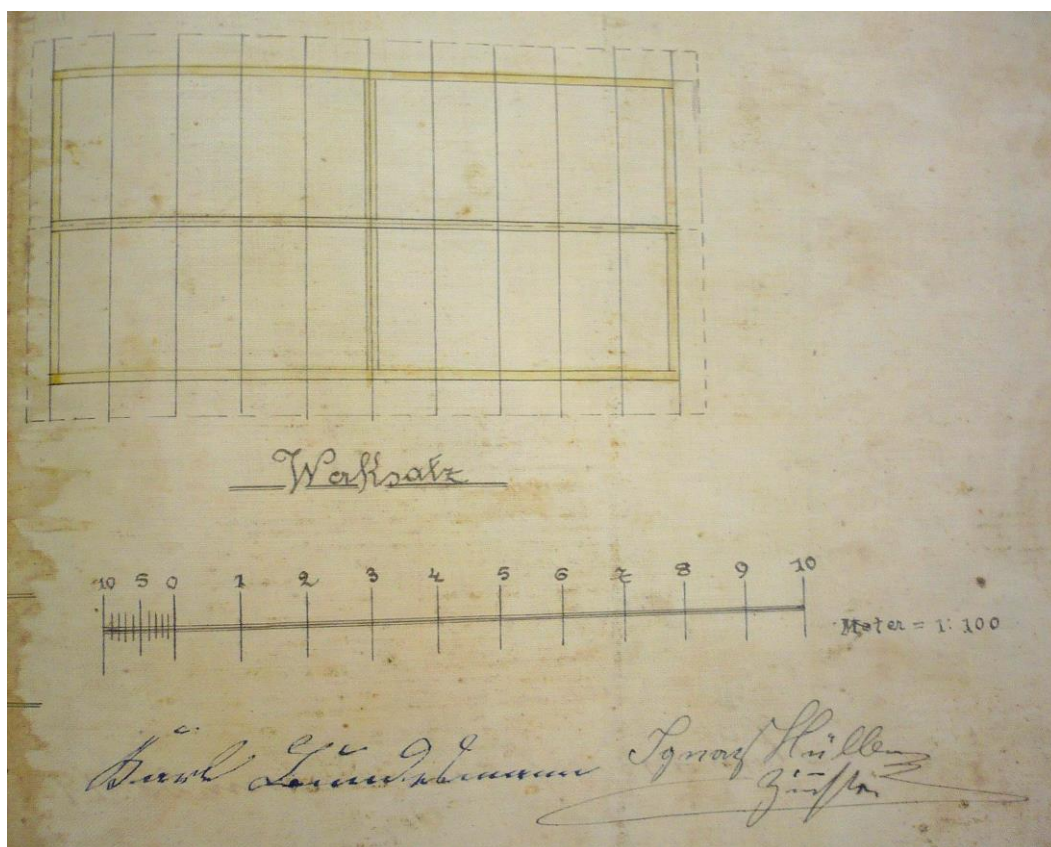 Werksatz
10 5 0 1 2 3 4 5 6 7 8 9 10
Meter = 1: 100
Karl
Ignaz Müller